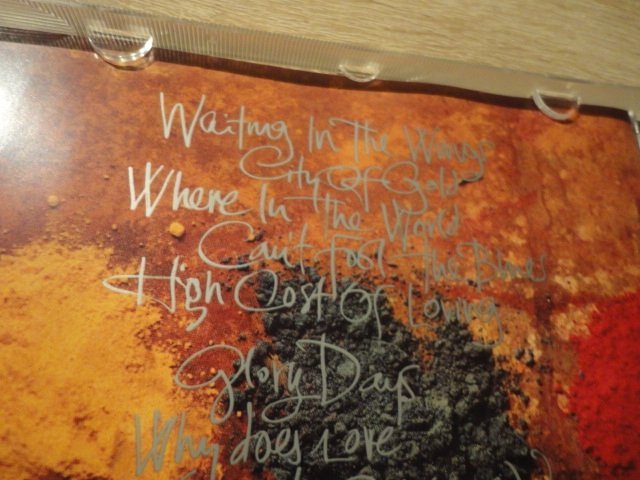 Waiting In The Wings
City Of Gold
Where In The World
Can't Fool The Blues
High Cost Of Loving
Glory Days
Why does Love